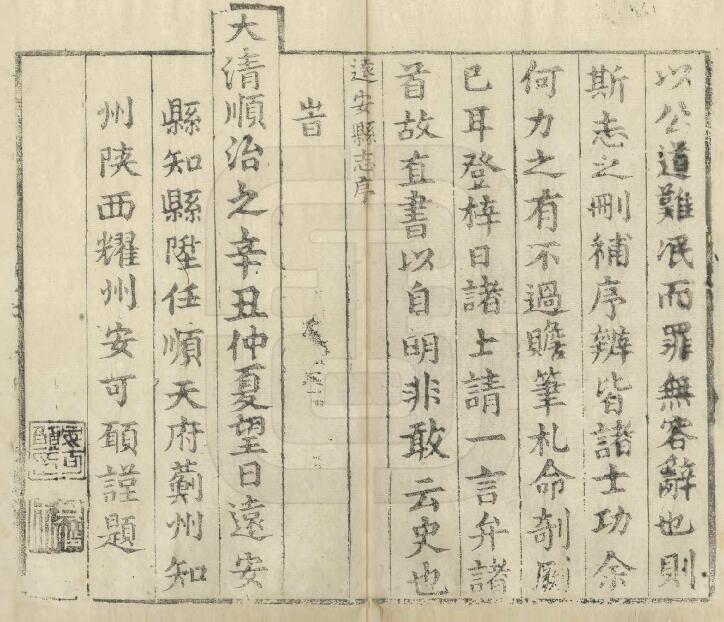 以公道難泯而罪無容辭也則
斯志之刪補序辨皆諸士功余
何力之有不過贍筆札命剞劂
已耳登梓日諸士請一言弁諸
首故直書以自明非敢云史也
遠安縣志序
旹
大清順治之辛丑仲夏望日遠安
縣知縣陞任順天府薊州知
州陝西耀州安可願謹題